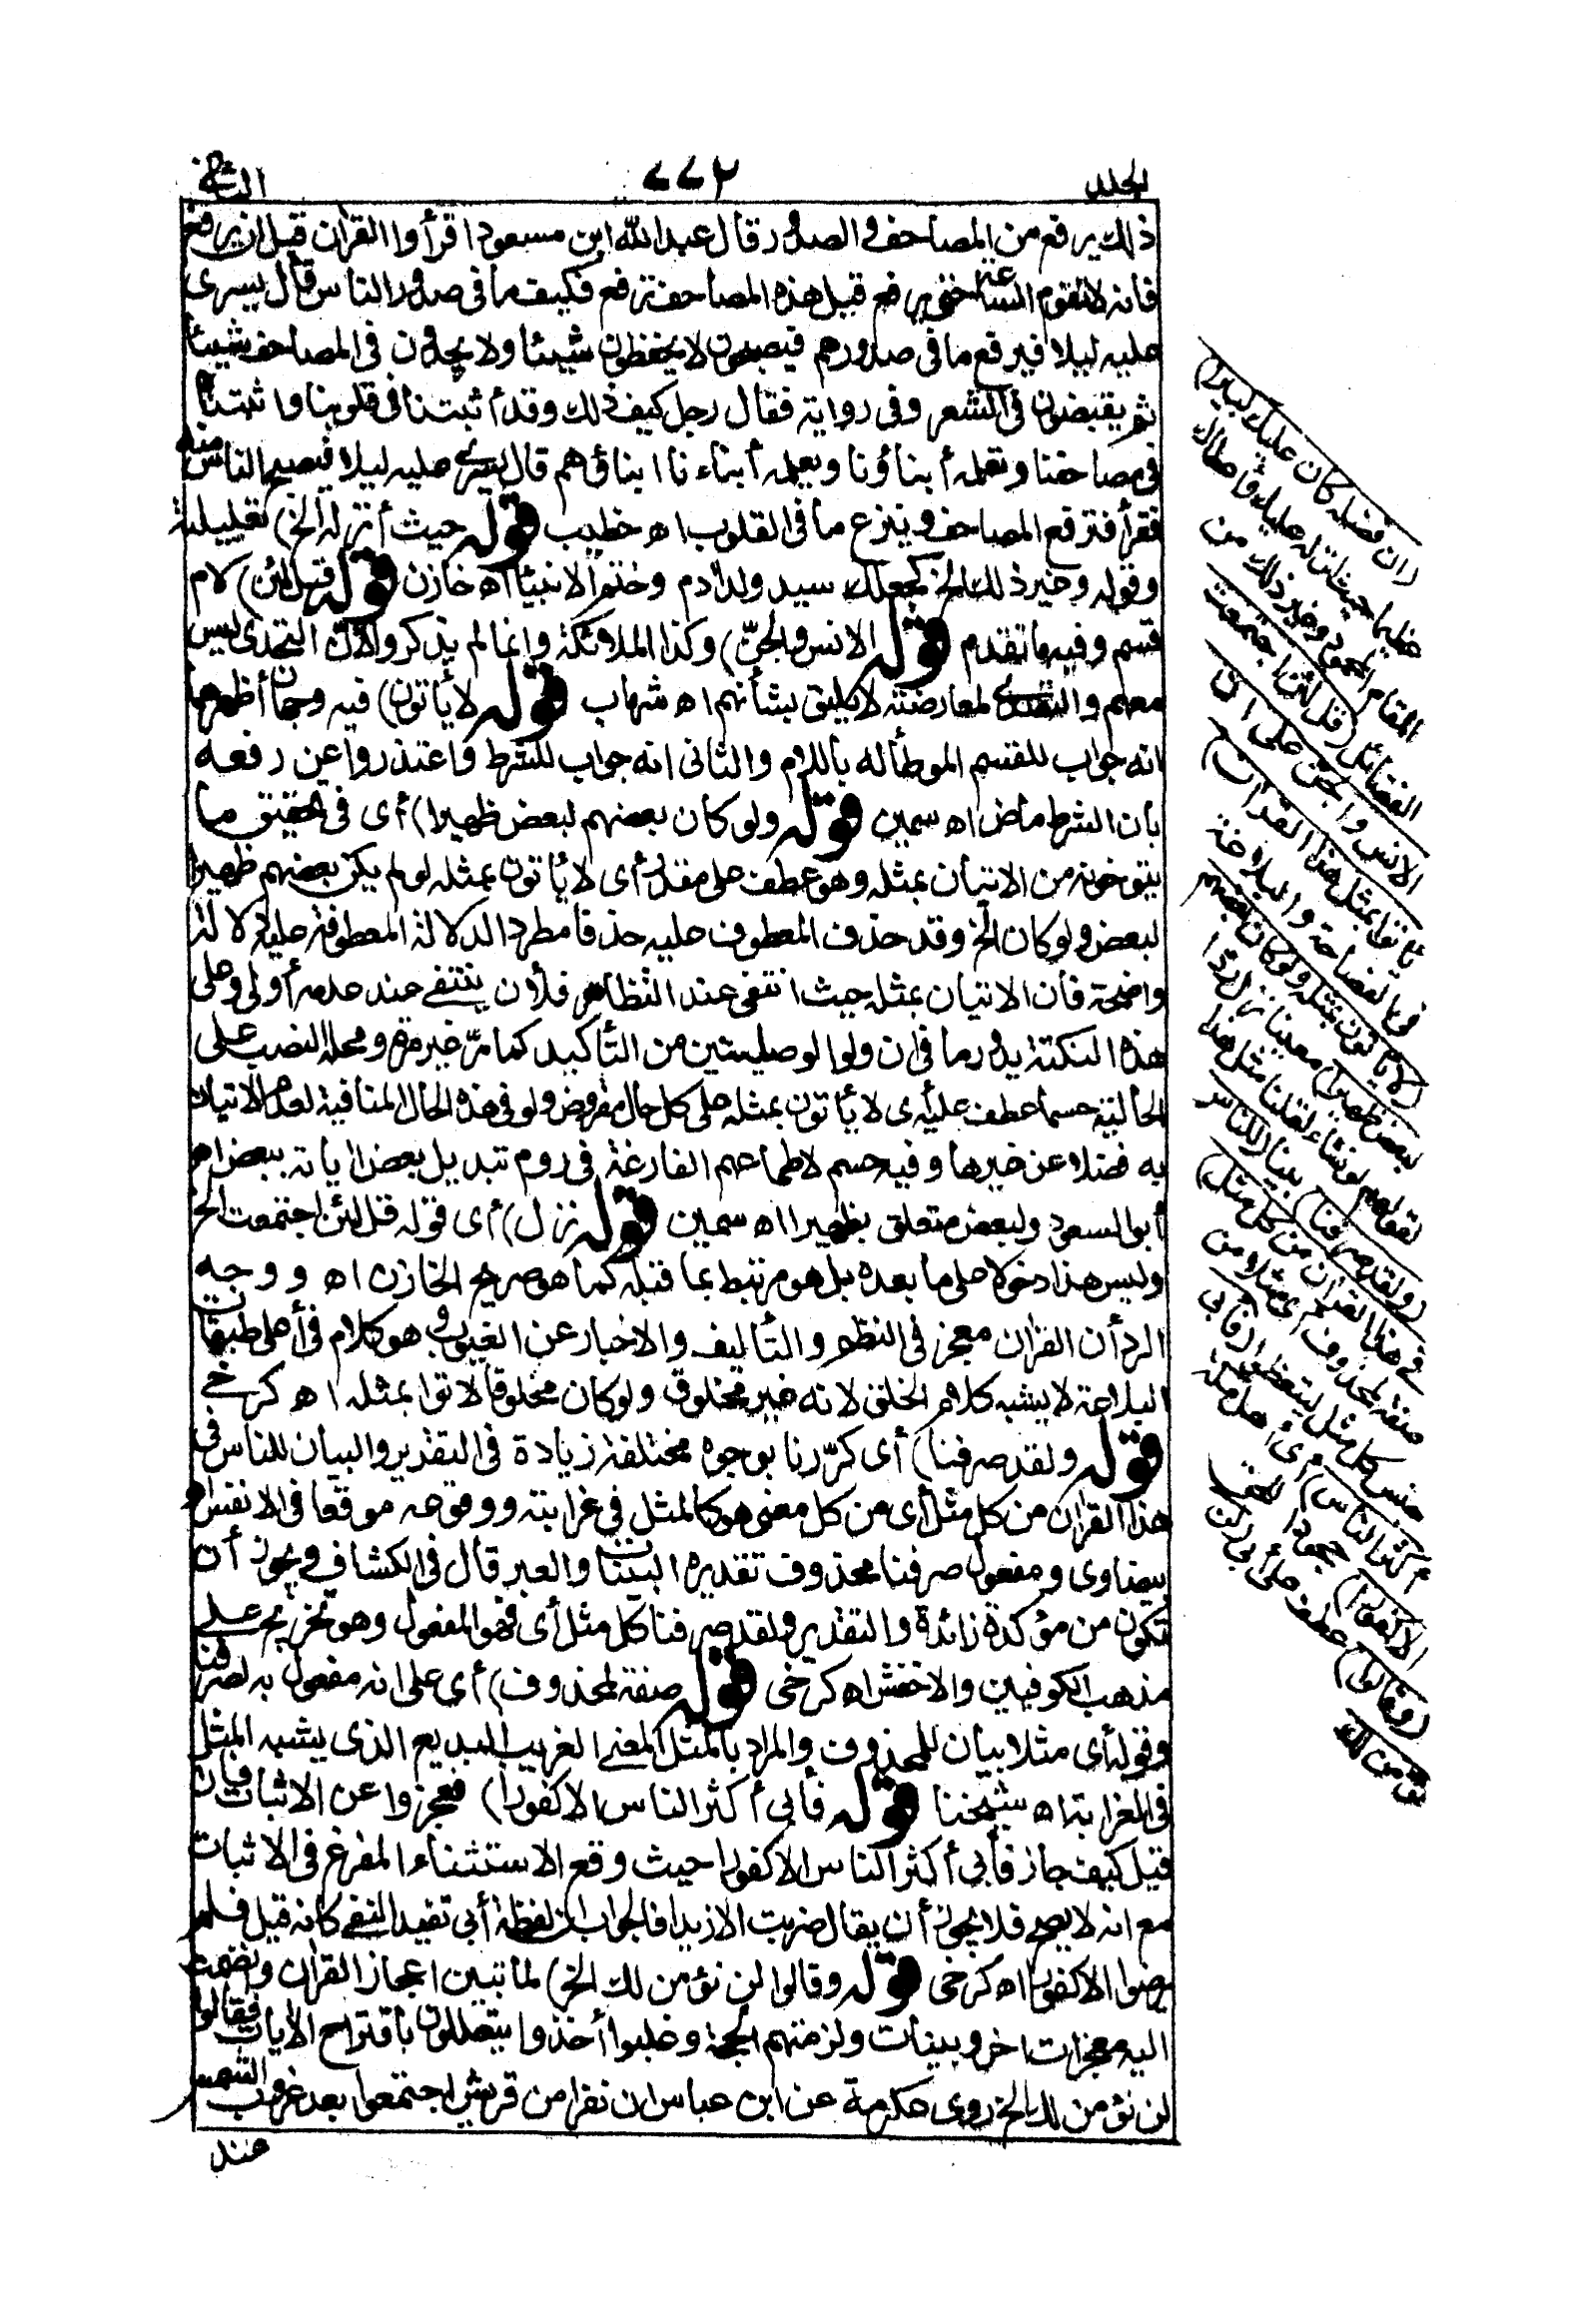 الجلد ٧٧٢ الثانى
ذلك يرفع من المصاحف والصدور قال عبد الله ابن مسعود اقرأوا القرآن قبل ان يرفع
فانه لا تقوم الساعة حتى يرفع قيل هذه المصاحف ترفع فكيف ما فى صدور الناس قال يسرى
عليه ليلا فيرفع ما فى صدورهم فيصبحون لا يحفظون شيئا ولا يجدون فى المصاحف شيئا
ثم يفيضون فى الشعر وفى رواية فقال رجل كيف ذلك وقد أثبتنا فى قلوبنا واثبتناه
فى مصاحفنا ونعلمه أبناؤنا ويعلمه أبناءنا ابناؤهم قال يسرى عليه ليلا فيصبح الناس منه
فقرأ فترفع المصاحف وينزع ما فى القلوب اه خطيب قوله حيث أنزله الخ) تعليلية
وقوله وغير ذلك الخ كجعلك سيد ولد آدم وختم الانبياء اه خازن قوله قل لئن) لام
قسم وفيه ما تقدم قوله الانس والجن) وكذا الملائكة وانما لم يذكروا لان التحدى ليس
معهم والتصدى لمعارضته لا يليق بشأنهم اه شهاب قوله لا يأتون) فيه وجهان أظهرهما
انه جواب للقسم الموطأ له باللام والثانى انه جواب للشرط واعتذروا عن رفعه
بان الشرط ماض اه سمين قوله ولو كان بعضهم لبعض ظهيرا) أى فى تحقيق ما
يتوخونه من الاتيان بمثله وهو عطف على مقدر أى لا يأتون بمثله لو لم يكن بعضهم ظهيرا
لبعض ولو كان الخ وقد حذف المعطوف عليه حذفا مطردا لدلالة المعطوف عليه دلالة
واضحة فان الاتيان بمثله حيث انتفى عند التظاهر فلأن ينتفى عند عدمه أولى وعلى
هذه النكتة يدور ما فى ان ولو الوصليتين من التأكيد كما مرّ غير مرة ومحله النصب على
الحالية حسبما عطف عليه أى لا يأتون بمثله على كل حال مفروض ولو فى هذه الحال المنافية لعدم الاتيان
به فضلا عن غيرها وفيه حسم لاطماعهم الفارغة فى روم تبديل بعض اياته ببعض اه
أبو السعود ولبعض متعلق بظهيرا اه سمين قوله نزل) أى قوله قل لئن اجتمعت الخ
وليس هذا دخولا على ما بعده بل هو مرتبط بما قبله كما هو صريح الخازن اه ووجه
الرد أن القرآن معجز فى النظم والتأليف والاخبار عن الغيوب وهو كلام فى أعلى طبقات
البلاغة لا يشبه كلام الخلق لانه غير مخلوق ولو كان مخلوقا لاتوا بمثله اه كرخى
قوله ولقد صرفنا) أى كرّرنا بوجوه مختلفة زيادة فى التقرير والبيان للناس فى
هذا القرآن من كل مثل أى من كل معنى هو كالمثل فى غرابته ووقوعه موقعا فى الانفس اه
بيضاوى ومفعول صرفنا محذوف تقديره البينات والعبر قال فى الكشاف ويجوز أن
تكون من مؤكدة زائدة والتقدير ولقد صرفنا كل مثل أى فهو المفعول وهو تخريج على
مذهب الكوفيين والاخفش اه كرخى قوله صفة لمحذوف) أى على انه مفعول به لصرفنا
وقوله أى مثلا بيان للمحذوف والمراد بالمثل المعنى الغريب البديع الذى يشبه المثل
فى الغرابة اه شيخنا قوله فأبى أكثر الناس الا كفورا) فعجزوا عن الاثبات فان
قيل كيف جاز فأبى أكثر الناس الا كفورا حيث وقع الاستثناء المفرغ فى الاثبات
مع انه لا يصح فلا يجوز أن يقال ضربت الا زيدا فالجواب ان لفظة أبى تفيد النفى كانه قيل فلم
يرضوا الا كفورا اه كرخى قوله وقالوا لن نؤمن لك الخ) لما تبين اعجاز القرآن وانضمت
اليه معجزات اخر وبينات ولزمتهم الحجة وغلبوا أخذوا يتعللون باقتراح الآيات فقالوا
لن نؤمن لك الخ روى عكرمة عن ابن عباس ان نفرا من قريش اجتمعوا بعد غروب الشمس
عند
(ان فضله كان عليك كبيرا)
عظيما حيث أنزله عليك وأعطاك
المقام المحمود وغير ذلك من
الفضائل (قل لئن اجتمعت
الانس والجن على ان
يأتوا بمثل هذا القرآن)
فى الفصاحة والبلاغة
(لا يأتون بمثله ولو كان بعضهم
لبعض ظهيرا) معينا نزل ردا
لقولهم لو نشاء لقلنا مثل هذا
(ولقد صرفنا) بينا (للناس
فى هذا القرآن من كل مثل)
صفة لمحذوف أى مثلا من
جنس كل مثل ليتعظوا (فأبى
أكثر الناس) أى أهل مكة
(الا كفورا) جحودا للحق
(وقالوا) عطف على أبى (لن
نؤمن لك